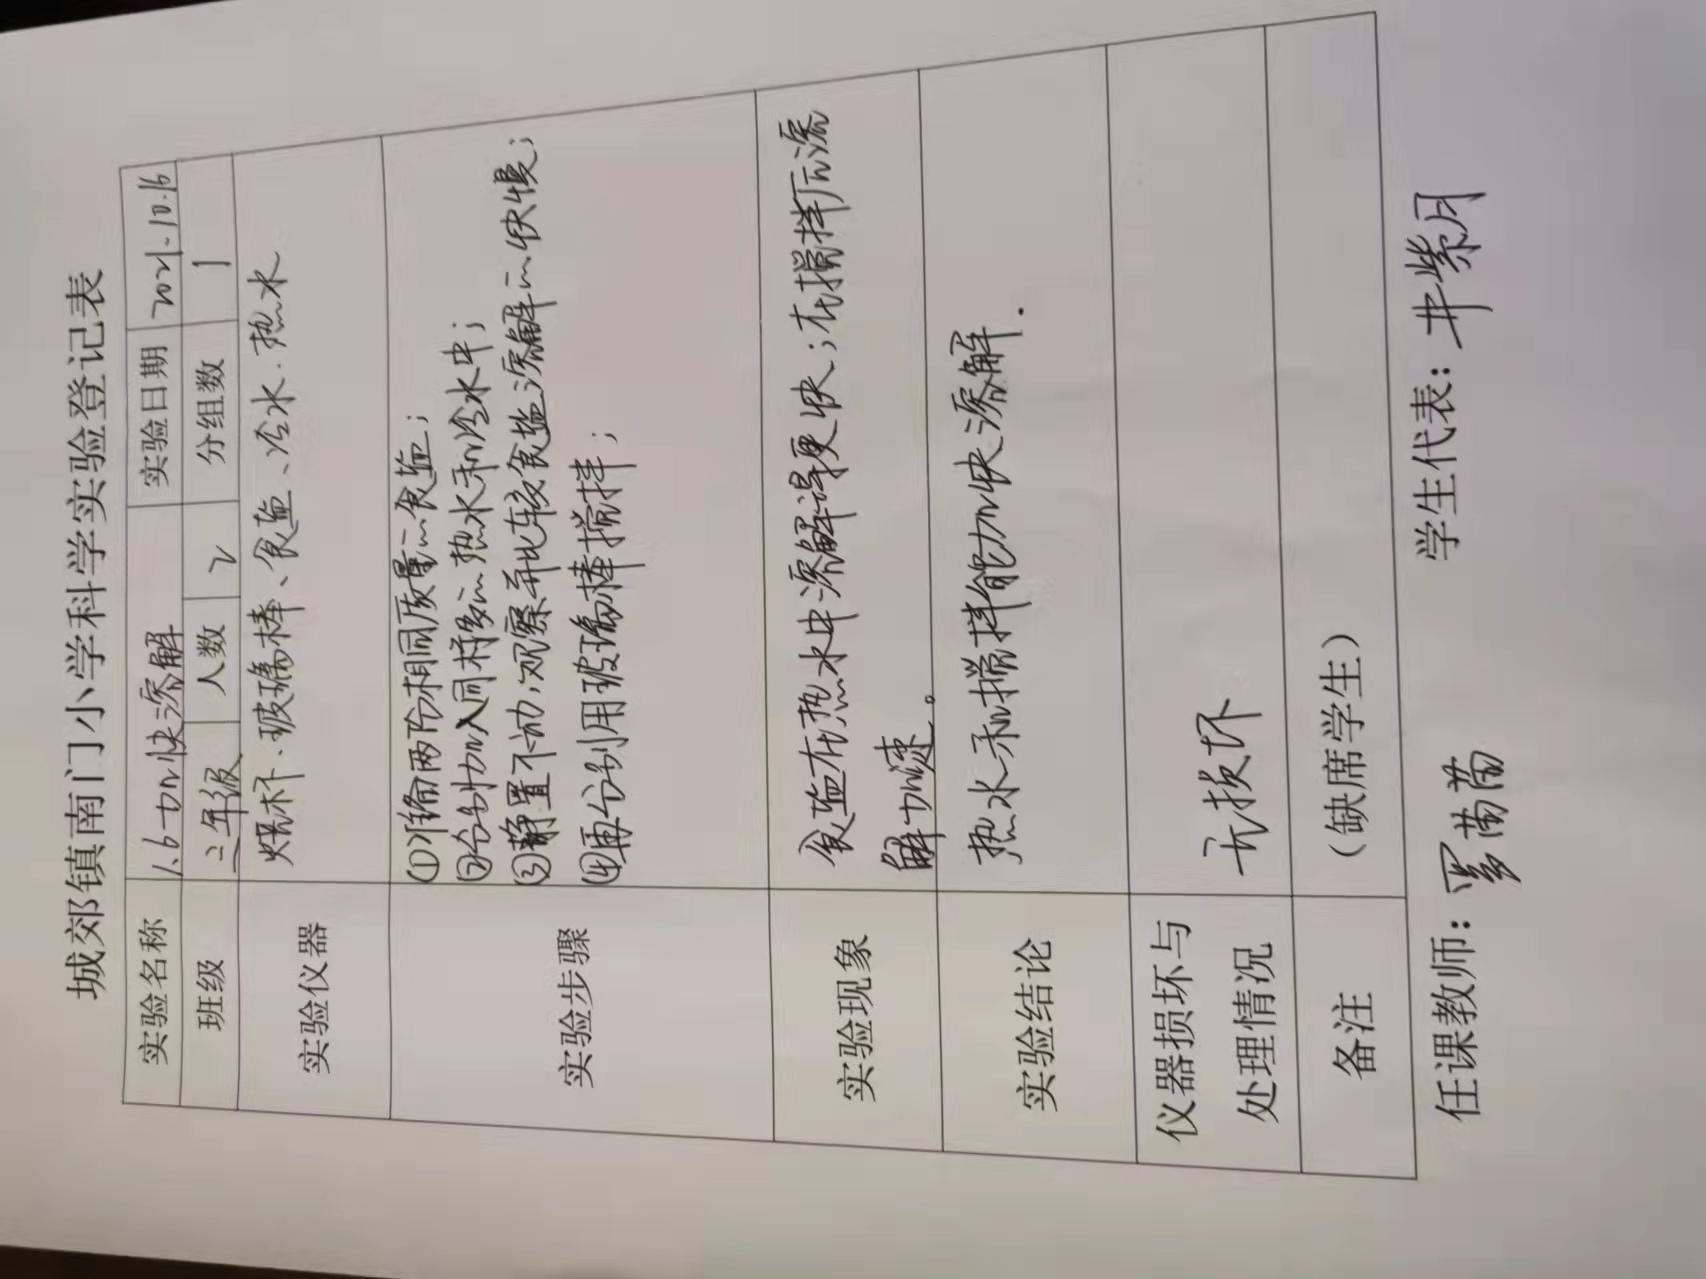 城郊镇南门小学科学实验登记表
实验名称 1.6加快溶解 实验日期 2021.10.16
班级 三年级 人数 2 分组数 1
实验仪器 烧杯、玻璃棒、食盐、冷水、热水
实验步骤
①准备两份相同质量的食盐;
②分别加入同样多的热水和冷水中;
③静置不动,观察并比较食盐溶解的快慢;
④再分别用玻璃棒搅拌;
实验现象
食盐在热水中溶解得更快;在搅拌后溶
解加速。
实验结论 热水和搅拌能加快溶解.
仪器损坏与
处理情况
无损坏
备注 (缺席学生)
任课教师: 茵茵 学生代表: 井紫月